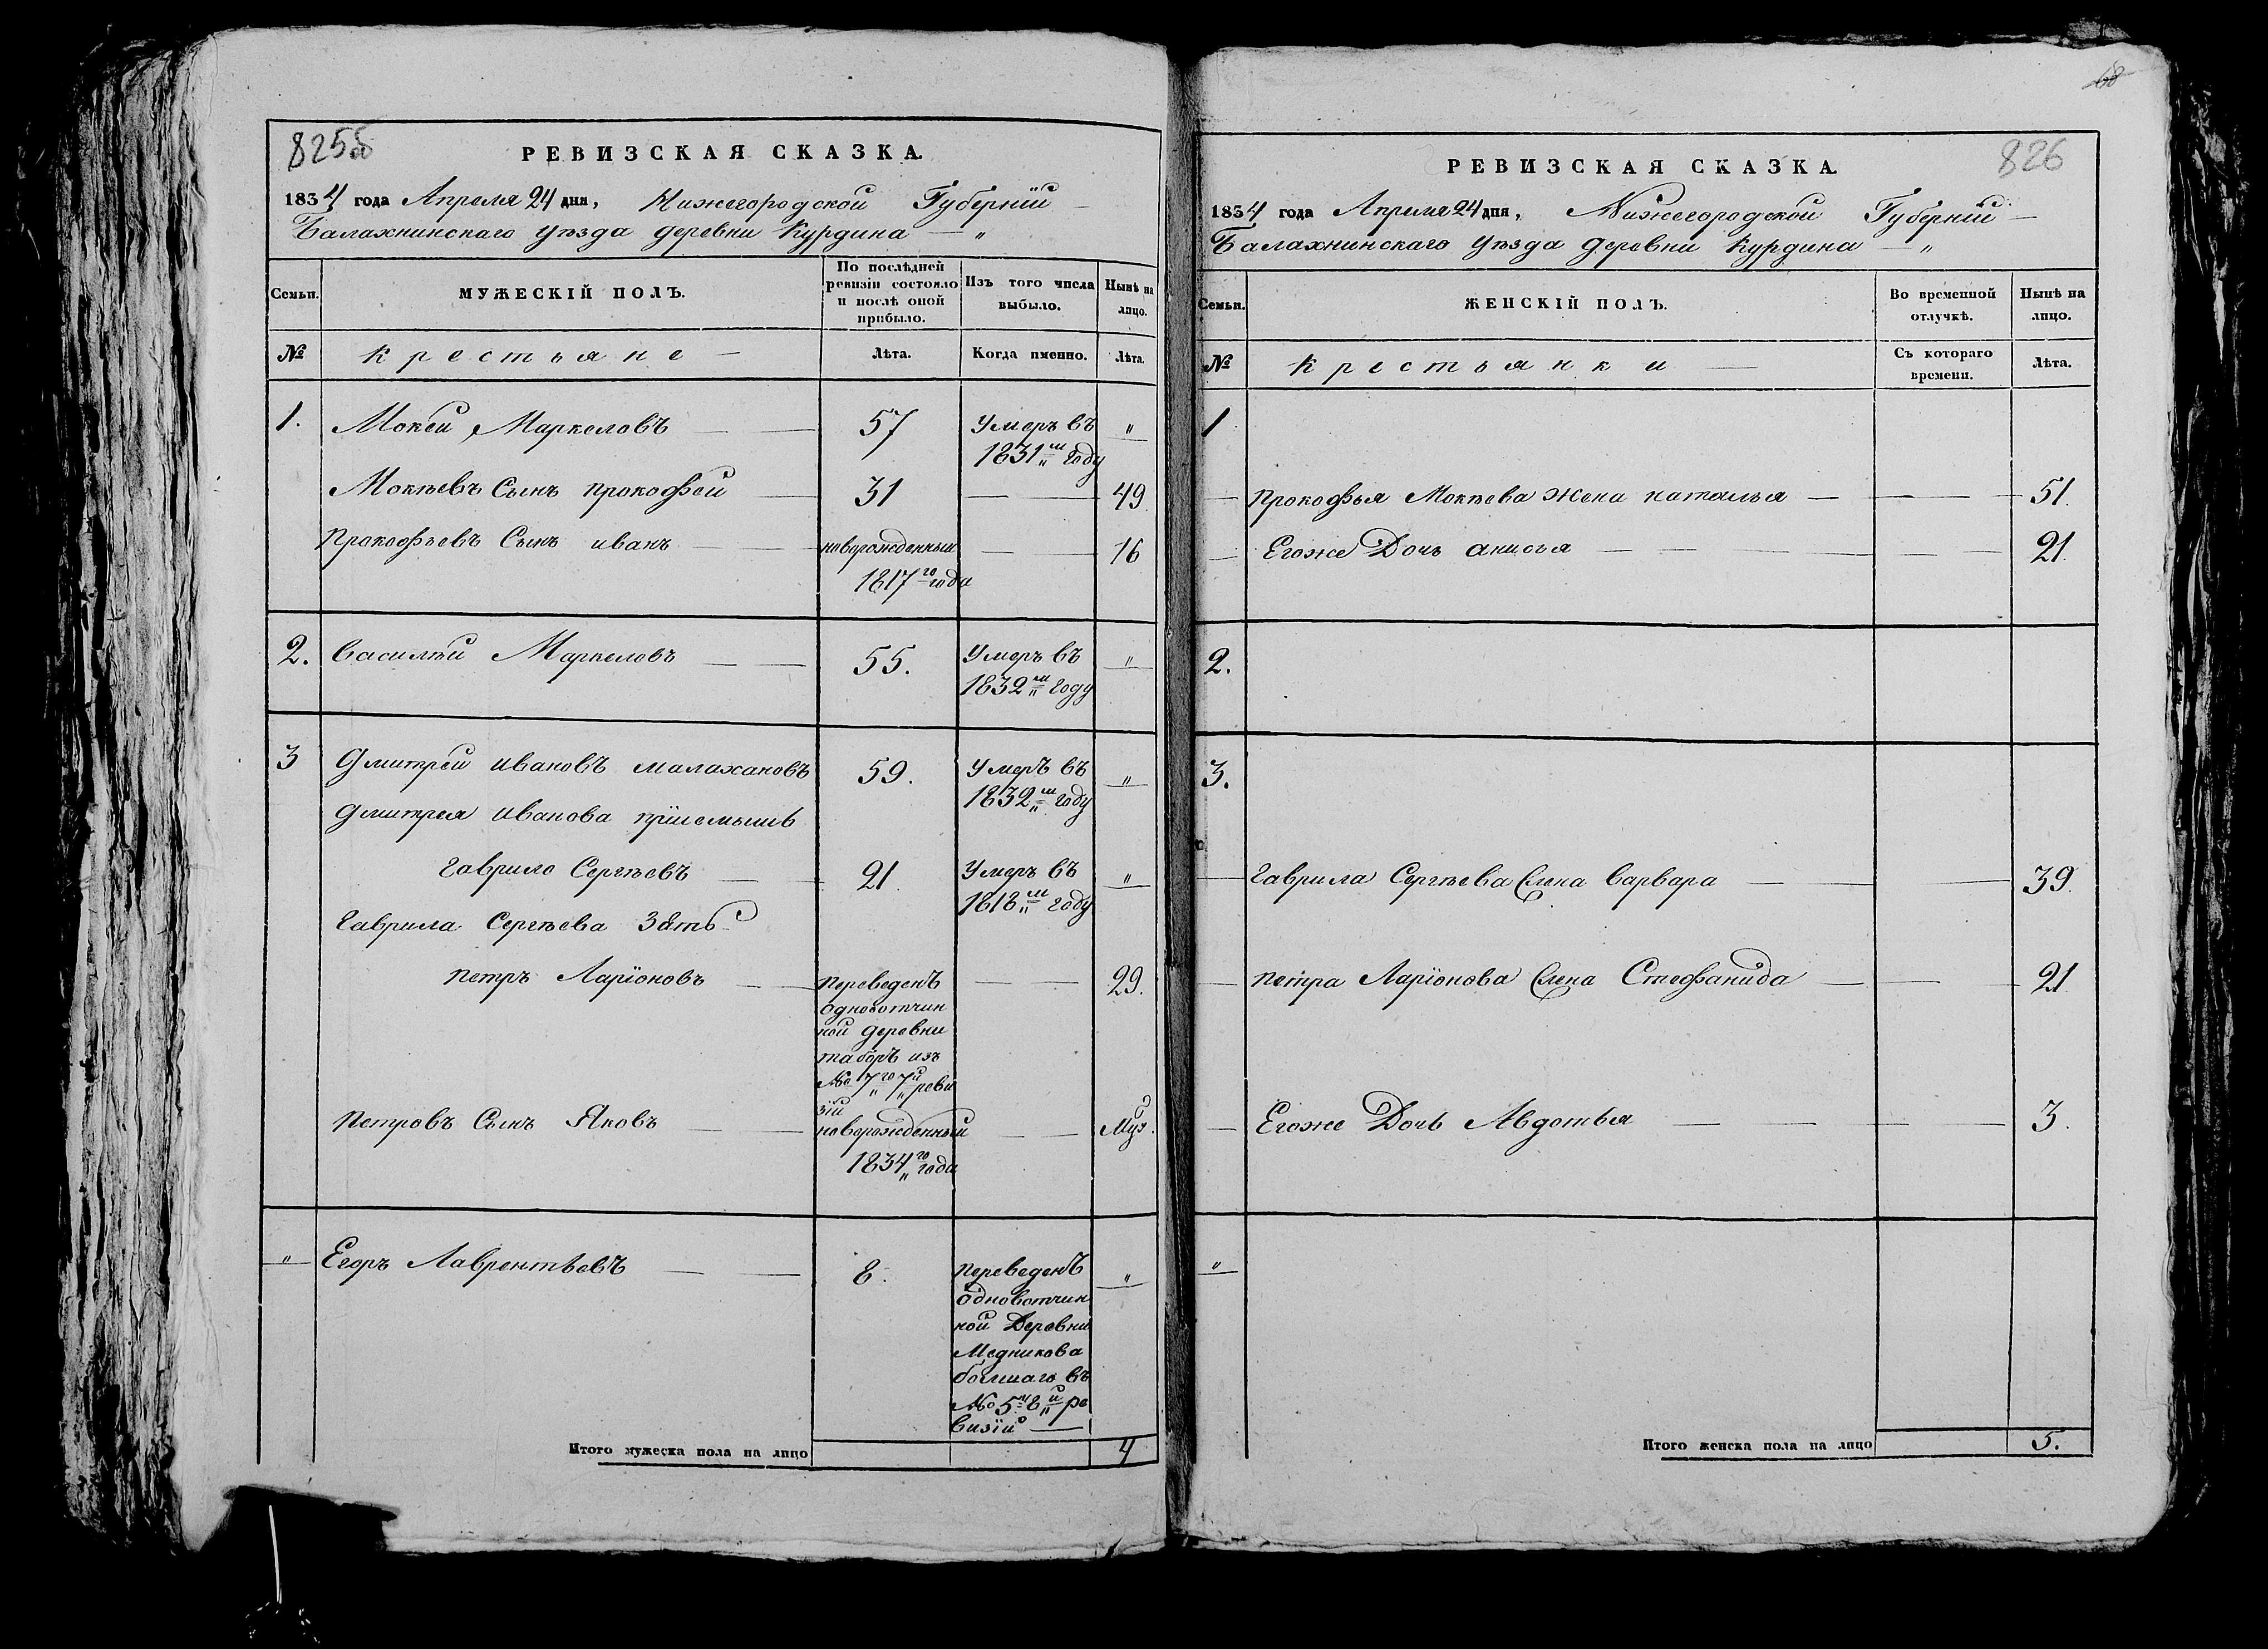 825об
РЕВИЗСКАЯ СКАЗКА.
1834 года Апреля 24 дня, Нижегородской Губернїи
Балахнинскаго уѣзда деревни Курдина — „
Семьи.
МУЖЕСКІЙ ПОЛЪ.
По послѣдней
ревизіи состояло
и послѣ оной
прибыло.
Изъ того числа
выбыло.
Нынѣ на
лицо.
№
крестьяне —
Лѣта.
Когда именно.
Лѣта.
1. Мокей Маркеловъ — — 57 Умеръ въ „
1831м году
Мокѣевъ Сынъ прокофей — 31 — — 49
Прокофьевъ Сынъ иванъ — — новорожденный — — 16
1817го года
2. Василий Маркеловъ — — 55. Умеръ въ „
1832м году
3 Дмитрей ивановъ малахановъ 59. Умеръ въ „
1832м году
Дмитрея иванова приемышъ
Гаврило Сергѣевъ — — 21. Умеръ въ „
1818м году
Гаврила Сергѣева Зять
петръ Ларїоновъ — — переведенъ — — 29.
одновотчин
ной деревни
таборъ изъ
№ 7го 7й реви
зїи
Петровъ Сынъ Яковъ — — новорожденный — — Муз.
1834го года
„ Егоръ Лаврентьевъ — — 8. переведенъ „
одновотчин
ной Деревни
Медникова
болшаго въ
№ 5й 8й ре
визїи —
Итого мужеска пола на лицо 4
68
826
РЕВИЗСКАЯ СКАЗКА.
1834 года Апреля 24 дня, Нижегородской Губернїи —
Балахнинскаго уѣзда деревни Курдина — „
Семьи.
ЖЕНСКІЙ ПОЛЪ.
Во временной
отлучкѣ.
Нынѣ на
лицо.
№
крестьянки —
Съ котораго
времени.
Лѣта.
1
— Прокофья Мокѣева жена наталья — — — 51.
— Егоже Дочь анисья — — — 21.
2.
3.
— Гаврила Сергѣева жена варвара — — — 39.
— петра Ларїонова жена Стефанида — — — 21
— Егоже Дочь Авдотья — — — — 3.
„
Итого женска пола на лицо 5.